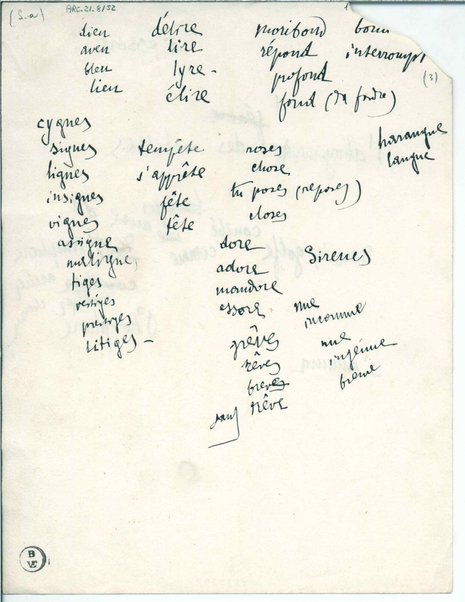 (S.a) ARC.21.8/52
lien délire moribond
aven lire répond interrompt
bleu lyre - profond (3)
lien élire fond (du fondre)
cygnes
signes tempête roses harangue
lignes s'apprête chose langue
insignes fête tu poses (reposes)
vignes tête closes
assigne dore
maligne, adore Sirenes
tiges mandore
vestiges essore nue
prestiges inconnue
litiges - grêves nue
rêves ingénue
breves brème
sauf rêve
B